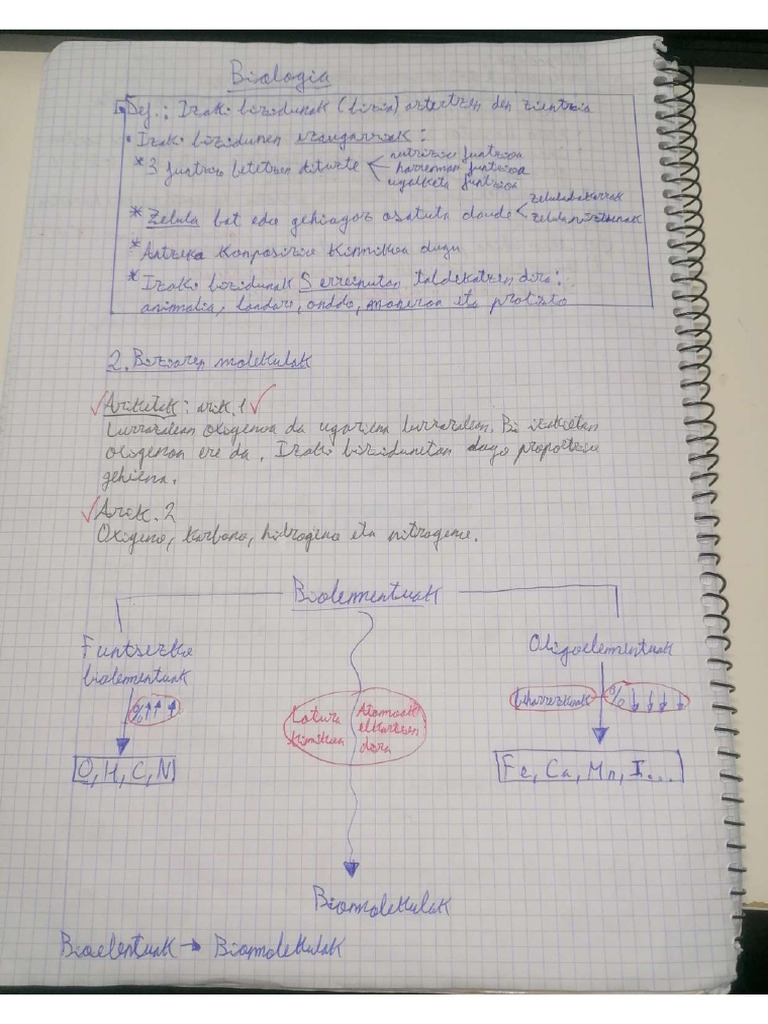 Biologia
Def.: Izaki bizidunak (bizia) aztertzen den zientzia
• Izaki bizidunen ezaugarriak:
* 3 funtzio betetzen dituzte
nutrizio funtzioa
harreman funtzioa
ugalketa funtzioa
* Zelula bat edo gehiagoz osatuta daude
zelulabakarrak
zelulanitzdunak
* Antzeko konposizio kimikoa dugu
* Izaki bizidunak 5 erreinutan taldekatzen dira:
animalia, landare, onddo, moneroa eta protisto
2. Biziaren molekulak
Ariketak: arik. 1
Lurrazalean oxigenoa da ugariena lurrazalean. Bi izakietan
oxigenoa ere da. Izaki bizidunetan dago proportzio
gehiena.
Arik. 2
Oxigeno, karbono, hidrogeno eta nitrogeno.
Biolementuak
Funtsezko
biolementuak
%↑↑↑
O, H, C, N
Lotura
kimikoa
Atomoak
elkartzen
dira
Oligoelementuak
beharrezkoak
% ↓↓↓↓
Fe, Ca, Mn, I...
Biomolekulak
Bioelentuak → Biomolekulak